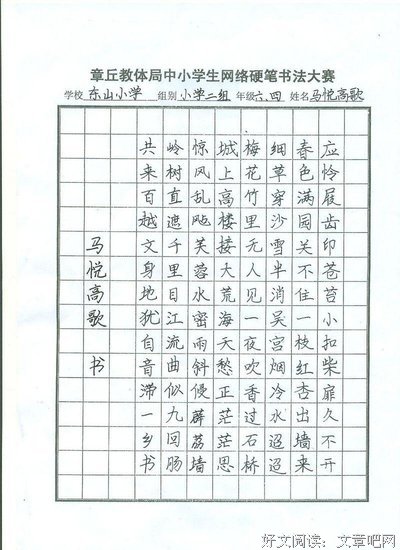 章丘教体局中小学生网络硬笔书法大赛
学校 东山小学 组别 小学二组 年级 六、四 姓名 马悦高歌
应怜屐齿印苍苔小扣柴扉久不开
春色满园关不住一枝红杏出墙来
细草穿沙雪半消吴宫烟冷水迢迢
梅花竹里无人见一夜吹香过石桥
城上高楼接大荒海天愁正茫茫思
惊风乱飐芙蓉水密雨斜侵薜荔墙
岭树直遮千里目江流曲似九回肠
共来百越文身地犹自音滞一乡书
马悦高歌 书
好文阅读：文章吧网